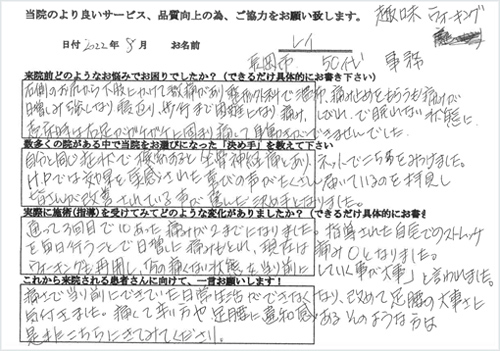 当院のより良いサービス、品質向上の為、ご協力をお願い致します。 趣味 ウォーキング
日付 2022年 8月 お名前 レイ
長岡市 50代 事務
来院前どのようなお悩みでお困りでしたか?(できるだけ具体的にお書き下さい)
右側のお尻から下肢にかけて激痛があり整形外科で 痛み止めをもらうも痛みが
日増しに ひどくなり寝返り、歩行まで困難になり痛み、しびれ、で眠れない状態に
右足 固まり痛くて身動きができませんでした。
数多くの院がある中で当院をお選びになった「決め手」を教えて下さい
自らと同じ症状で検索すると坐骨神経痛とあり、ネットでこちらをみつけました。
HPでは効果を実感された喜びの声がたくさん届いているのを拝見し
皆さんが改善されている事が 決め手になりました。
実際に施術(指導)を受けてみてどのような変化がありましたか?(できるだけ具体的にお書き
通って3回で10あった痛みが2までになりました。指導された自宅でのストレッチ
を毎日行うことで日増しに痛みもとれ、現在は痛み0となりました。
ウォーキングも再開し、「何の痛くない状態を当り前にしていく事が大事」と言われました。
これから来院される患者さんに向けて、一言お願いします!
痛さで当り前にできていた日常生活ができなくなり、改めて足腰の大事さに
気付きました。痛くて辛い方や足腰に違和感があるんのような方は
是非こちらにきてみてください。